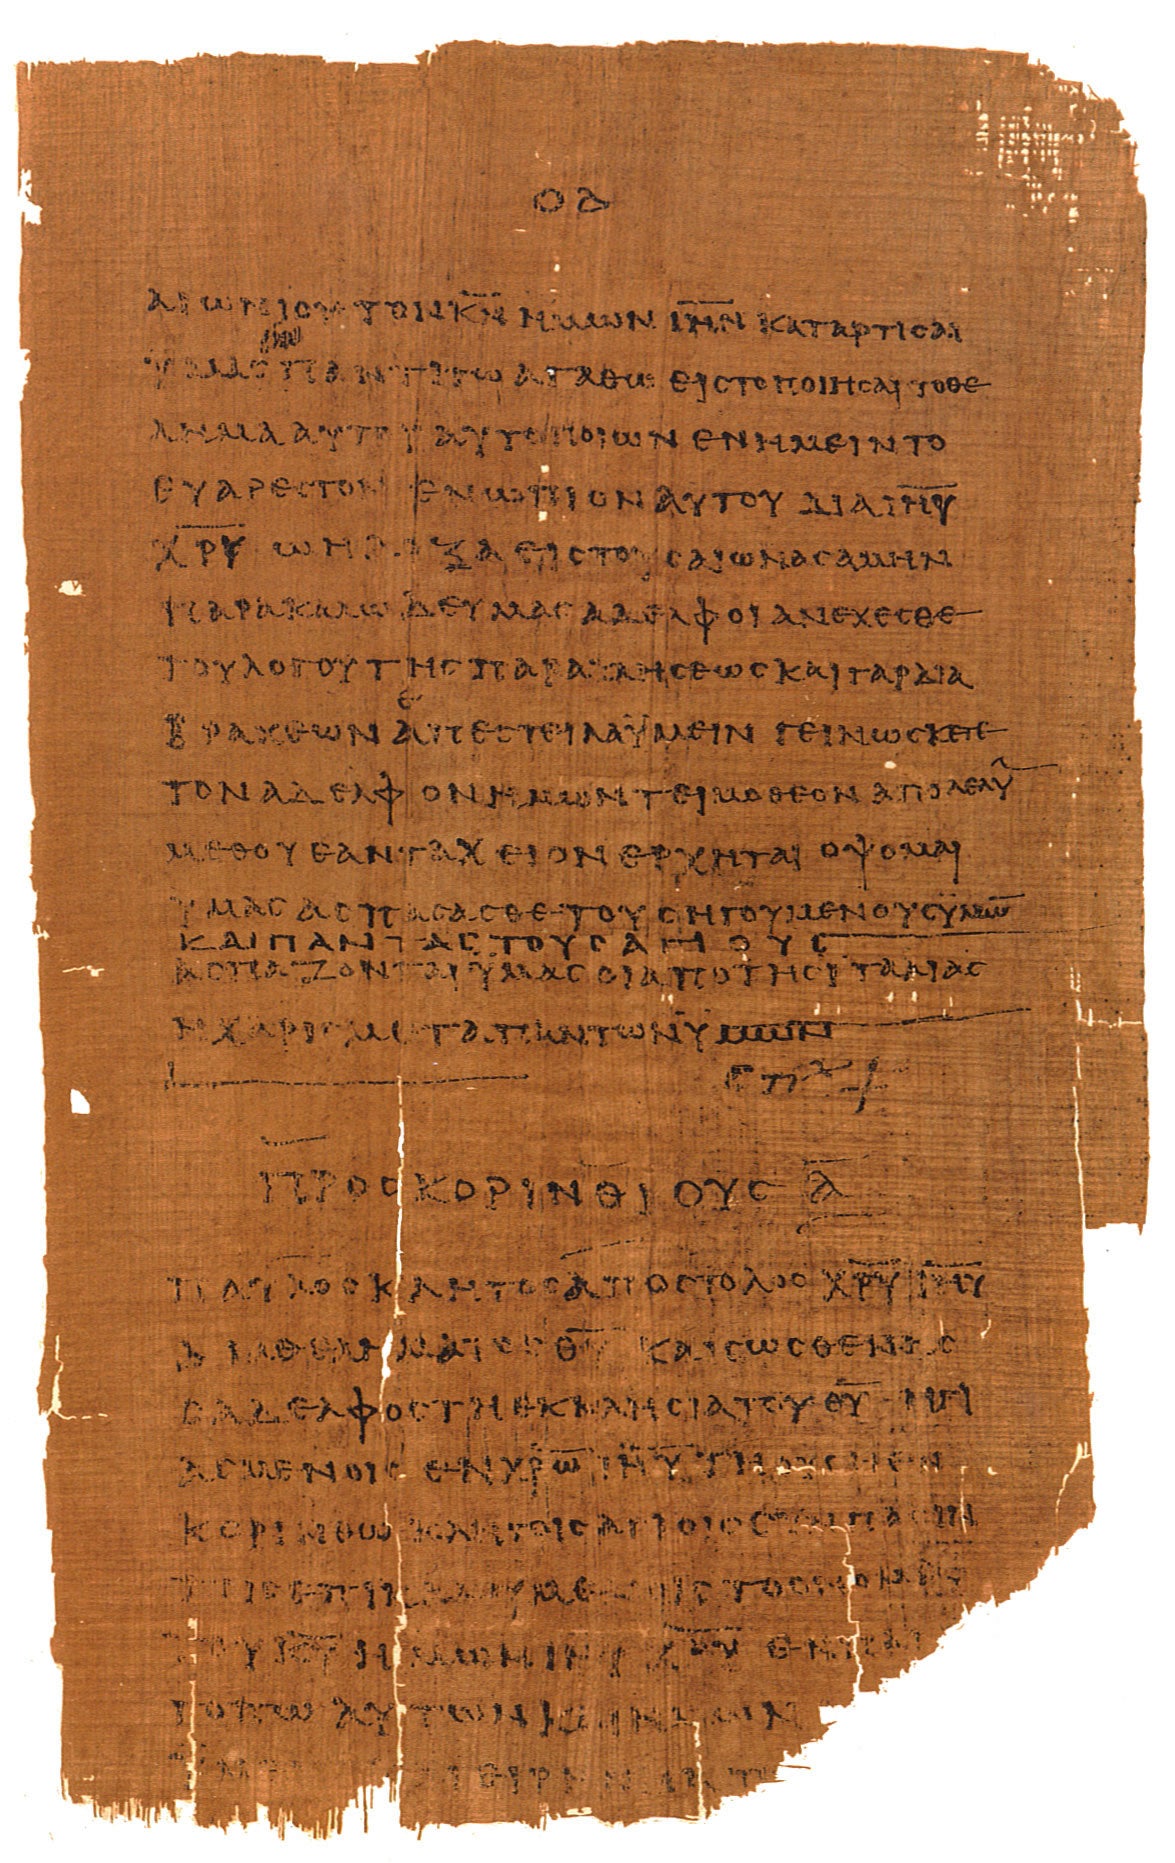 ΟΑ
ΑΙΩΝΙΟΥ ΤΟΝ Κ̅Ν̅ ΗΜΩΝ Ι̅Η̅Ν̅ ΚΑΤΑΡΤΙΣΑΙ
ΥΜΑΣ ΠΑΝΤΙ ΤΩ ΑΓΑΘΩ ΕΙΣ ΤΟ ΠΟΙΗΣΑΙ ΤΟ ΘΕ
ΛΗΜΑ ΑΥΤΟΥ ΑΥΤΟ ΠΟΙΩΝ ΕΝ ΗΜΕΙΝ ΤΟ
ΕΥΑΡΕΣΤΟΝ ΕΝΩΠΙΟΝ ΑΥΤΟΥ ΔΙΑ Ι̅Η̅Υ̅
Χ̅Ρ̅Υ̅ Ω Η ΔΟΞΑ ΕΙΣ ΤΟΥΣ ΑΙΩΝΑΣ ΑΜΗΝ
ΠΑΡΑΚΑΛΩ ΔΕ ΥΜΑΣ ΑΔΕΛΦΟΙ ΑΝΕΧΕΣΘΕ
ΤΟΥ ΛΟΓΟΥ ΤΗΣ ΠΑΡΑΚΛΗΣΕΩΣ ΚΑΙ ΓΑΡ ΔΙΑ
ΒΡΑΧΕΩΝ ΑΠΕΣΤΕΙΛΑ ΫΜΕΙΝ ΓΕΙΝΩΣΚΕΤΕ
ΤΟΝ ΑΔΕΛΦΟΝ ΗΜΩΝ ΤΕΙΜΟΘΕΟΝ ΑΠΟΛΕΛΥ
ΜΕΘ ΟΥ ΕΑΝ ΤΑΧΕΙΟΝ ΕΡΧΗΤΑΙ ΟΨΟΜΑΙ
ΥΜΑΣ ΑΣΠΑΣΑΣΘΕ ΤΟΥΣ ΗΓΟΥΜΕΝΟΥΣ ΫΜΩ̅
ΚΑΙ ΠΑΝΤΑΣ ΤΟΥΣ ΑΓΙΟΥΣ
ΑΣΠΑΖΟΝΤΑΙ ΫΜΑΣ ΟΙ ΑΠΟ ΤΗΣ ΙΤΑΛΙΑΣ
Η ΧΑΡΙΣ ΜΕΤΑ ΠΑΝΤΩΝ ΫΜΩΝ
ΠΡΟΣ ΚΟΡΙΝΘΙΟΥΣ Α̅
ΠΑΥΛΟΣ ΚΛΗΤΟΣ ΑΠΟΣΤΟΛΟΣ Χ̅Ρ̅Υ̅ Ι̅Η̅Υ̅
ΔΙΑ ΘΕΛΗΜΑΤΟΣ Θ̅Υ̅ ΚΑΙ ΣΩΣΘΕΝΗΣ
Ο ΑΔΕΛΦΟΣ ΤΗ ΕΚΚΛΗΣΙΑ ΤΟΥ Θ̅Υ̅ ΗΓΙ
ΑΣΜΕΝΟΙΣ ΕΝ Χ̅Ρ̅Ω̅ Ι̅Η̅Υ̅ ΤΗ ΟΥΣΗ ΕΝ
ΚΟΡΙΝΘΩ ΚΛΗΤΟΙΣ ΑΓΙΟΙΣ ΣΥΝ ΠΑΣΙΝ
ΤΟΙΣ ΕΠΙΚΑΛΟΥΜΕΝΟΙΣ ΤΟ ΟΝΟΜΑ
ΤΟΥ Κ̅Υ̅ ΗΜΩΝ Ι̅Η̅Υ̅ Χ̅Ρ̅Υ̅ ΕΝ ΠΑΝΤΙ
ΤΟΠΩ ΑΥΤΩΝ ΚΑΙ ΗΜΩΝ
ΕΙΡΗΝΗ ΑΠΟ